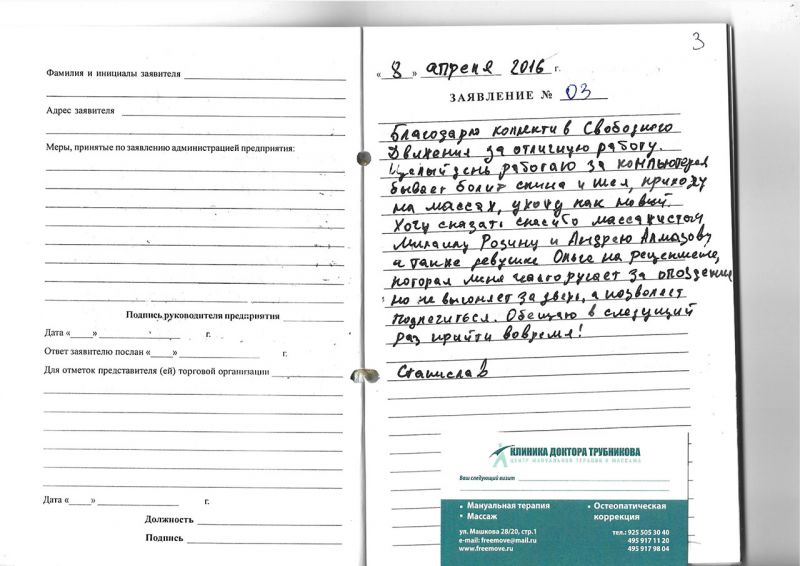 Фамилия и инициалы заявителя
Адрес заявителя
Меры, принятые по заявлению администрацией предприятия:
Подпись руководителя предприятия
Дата «___» г.
Ответ заявителю послан «___» г.
Для отметок представителя (ей) торговой организации
Дата «___» г.
Должность
Подпись
3
« 8 » апреля 2016 г.
ЗАЯВЛЕНИЕ № 03
Благодарю коллектив Свободного
Движения за отличную работу.
Целый день работаю за компьютером
бывает болит спина и шея, прихожу
на массаж, ухожу как новый.
Хочу сказать спасибо массажистам
Михаилу Розину и Андрею Алмазову
а также девушке Ольге на рецепшене,
которая меня часто ругает за опоздение
но не выгоняет за дверь, а позволяет
подлечиться. Обещаю в следущий
раз прийти вовремя!
Станислав
КЛИНИКА ДОКТОРА ТРУБНИКОВА
ЦЕНТР МАНУАЛЬНОЙ ТЕРАПИИ И МАССАЖА
Ваш следующий визит
• Мануальная терапия
• Массаж
• Остеопатическая
коррекция
ул. Машкова 28/20, стр.1
e-mail: freemove@mail.ru
www.freemove.ru
тел.: 925 505 30 40
495 917 11 20
495 917 98 04